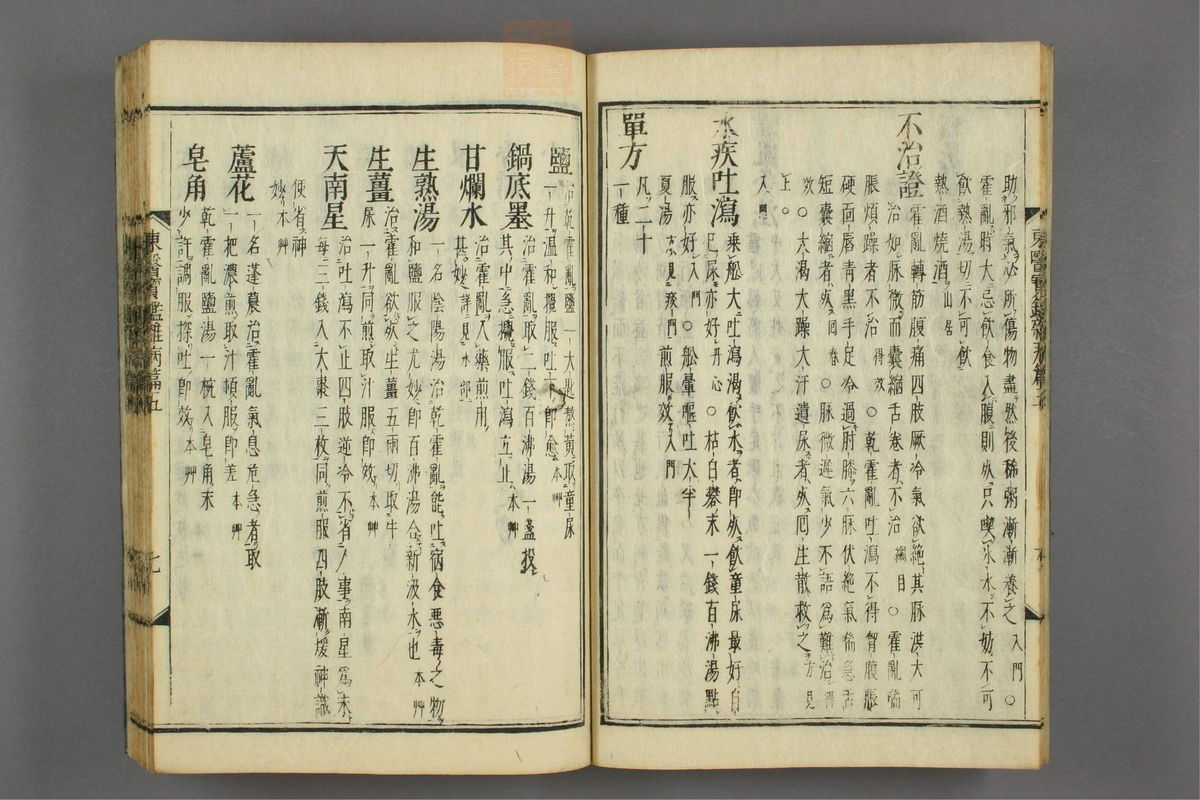 助邪氣必所傷物盡然後稀粥漸漸養之入門○
霍亂時大忌飮食入腹則死只喫氷水不妨不可
飮熱湯切不可飮
熱酒燒酒山居
不治證
霍亂轉筋腹痛四肢厥冷氣欲絶其脉洪大可
治如脉微而囊縮舌卷者不治綱目○霍亂喘
脹煩躁者不治得效○乾霍亂吐瀉不得胷腹脹
硬面唇青黑手足冷過肘膝六脉伏絶氣喘急舌
短囊縮者死回春○脉微遲氣少不語爲難治得
效○大渴大躁大汗遺尿者死囘生散救之方見
上○
入門
水疾吐瀉
乘船大吐瀉渴飮水者卽死飮童尿最好自
己尿亦好丹心○枯白礬末一錢百沸湯點
服亦好入門○船暈嘔吐大半
夏湯方見痰門煎服效入門
單方
凡二十
一種
鹽
治乾霍亂鹽一大匙熬黃取童尿
一升溫和攪服吐下卽愈本艸
鍋底墨
治霍亂取二錢百沸湯一盞投
其中急攪服吐瀉立止本艸
甘爛水
治霍亂入藥煎用
甚妙詳見水部
生熟湯
一名陰陽湯治乾霍亂能吐宿食惡毒之物
和鹽服之尤妙卽百沸湯合新汲水也本艸
生薑
治霍亂欲死生薑五兩切取牛
尿一升同煎取汁服卽效本艸
天南星
治吐瀉不止四肢逆冷不省人事南星爲末
每三錢入大棗三枚同煎服四肢漸煖神識
便省神
妙本艸
蘆花
一名蓬蕽治霍亂氣息危急者取
一把濃煎取汁頓服卽差本艸
皂角
乾霍亂鹽湯一椀入皂角末
少許調服探吐卽效本艸
東醫寶鑑雜病篇五
七